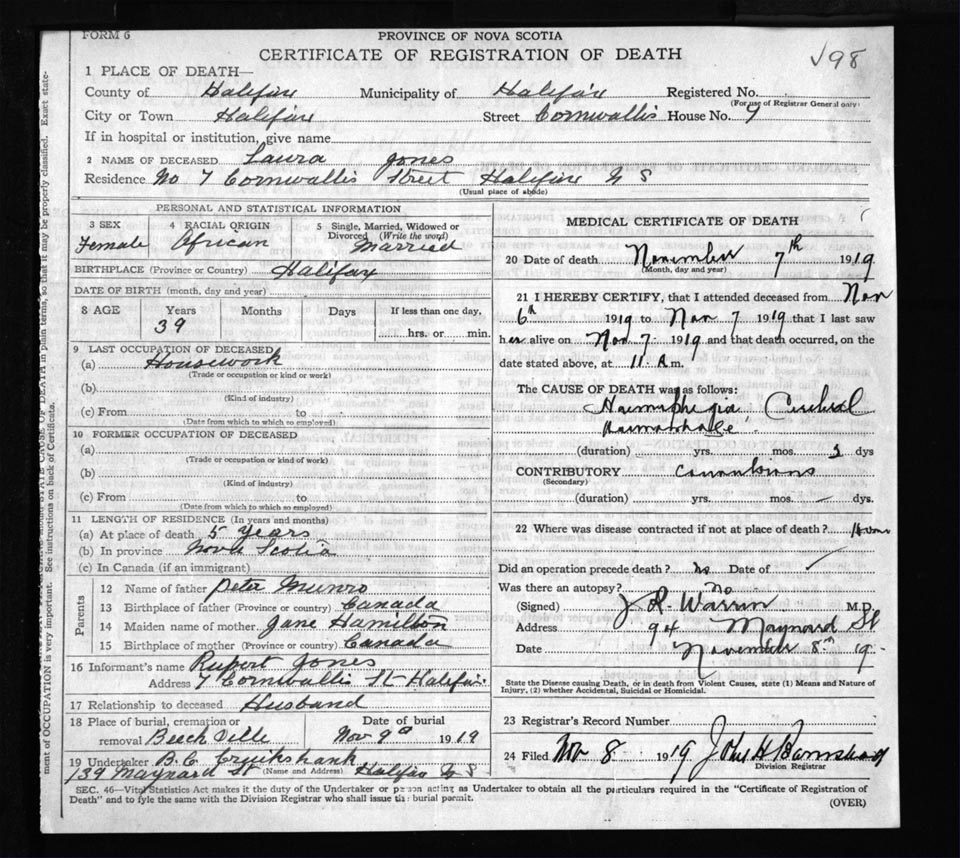 FORM 6
PROVINCE OF NOVA SCOTIA
CERTIFICATE OF REGISTRATION OF DEATH
√98
1 PLACE OF DEATH—
County of Halifax Municipality of Halifax Registered No.
(For use of Registrar General only)
City or Town Halifax Street Cornwallis House No. 9
If in hospital or institution, give name
2 NAME OF DECEASED Laura Jones
Residence No 7 Cornwallis Street Halifax N S
(Usual place of abode)
PERSONAL AND STATISTICAL INFORMATION
3 SEX Female
4 RACIAL ORIGIN African
5 Single, Married, Widowed or Divorced (Write the word) Married
BIRTHPLACE (Province or Country) Halifax
DATE OF BIRTH (month, day and year)
8 AGE Years 39 Months Days If less than one day, hrs. or min.
9 LAST OCCUPATION OF DECEASED
(a) Housework
(Trade or occupation or kind or work)
(b)
(Kind of industry)
(c) From to
(Date from which to which so employed)
10 FORMER OCCUPATION OF DECEASED
(a)
(Trade or occupation or kind of work)
(b)
(Kind of industry)
(c) From to
(Date from which to which so employed)
11 LENGTH OF RESIDENCE (In years and months)
(a) At place of death 5 Years
(b) In province Nova Scotia
(c) In Canada (if an immigrant)
Parents
12 Name of father Peter Munro
13 Birthplace of father (Province or country) Canada
14 Maiden name of mother Jane Hamilton
15 Birthplace of mother (Province or country) Canada
16 Informant's name Rupert Jones
Address 7 Cornwallis St Halifax
17 Relationship to deceased Husband
18 Place of burial, cremation or removal Beech Ville Date of burial Nov 9th 1919
19 Undertaker B.C. Cruikshank
139 Maynard St (Name and Address) Halifax N S
MEDICAL CERTIFICATE OF DEATH
20 Date of death November 7th 1919
(Month, day and year)
21 I HEREBY CERTIFY, that I attended deceased from Nov
6th 1919 to Nov 7 1919 that I last saw
her alive on Nov 7 1919 and that death occurred, on the
date stated above, at 11 A m.
The CAUSE OF DEATH was as follows:
Cerebral
(duration) yrs. mos. dys
CONTRIBUTORY
(Secondary)
(duration) yrs. mos. — dys.
22 Where was disease contracted if not at place of death? Home
Did an operation precede death? No Date of
Was there an autopsy? no
(Signed) J. R. Warren M.D.
Address 94 Maynard St
Date November 8th 19
State the Disease causing Death, or in death from Violent Causes, state (1) Means and Nature of
Injury, (2) whether Accidental, Suicidal or Homicidal.
23 Registrar's Record Number
24 Filed Nov 8 1919 John H
Division Registrar
SEC. 46—Vital Statistics Act makes it the duty of the Undertaker or person acting as Undertaker to obtain all the particulars required in the "Certificate of Registration of
Death" and to fyle the same with the Division Registrar who shall issue the burial permit.
(OVER)
STATE CAUSE OF DEATH in plain terms, so that it may be properly classified. Exact state-
ment of OCCUPATION is very important. See instructions on back of Certificate.